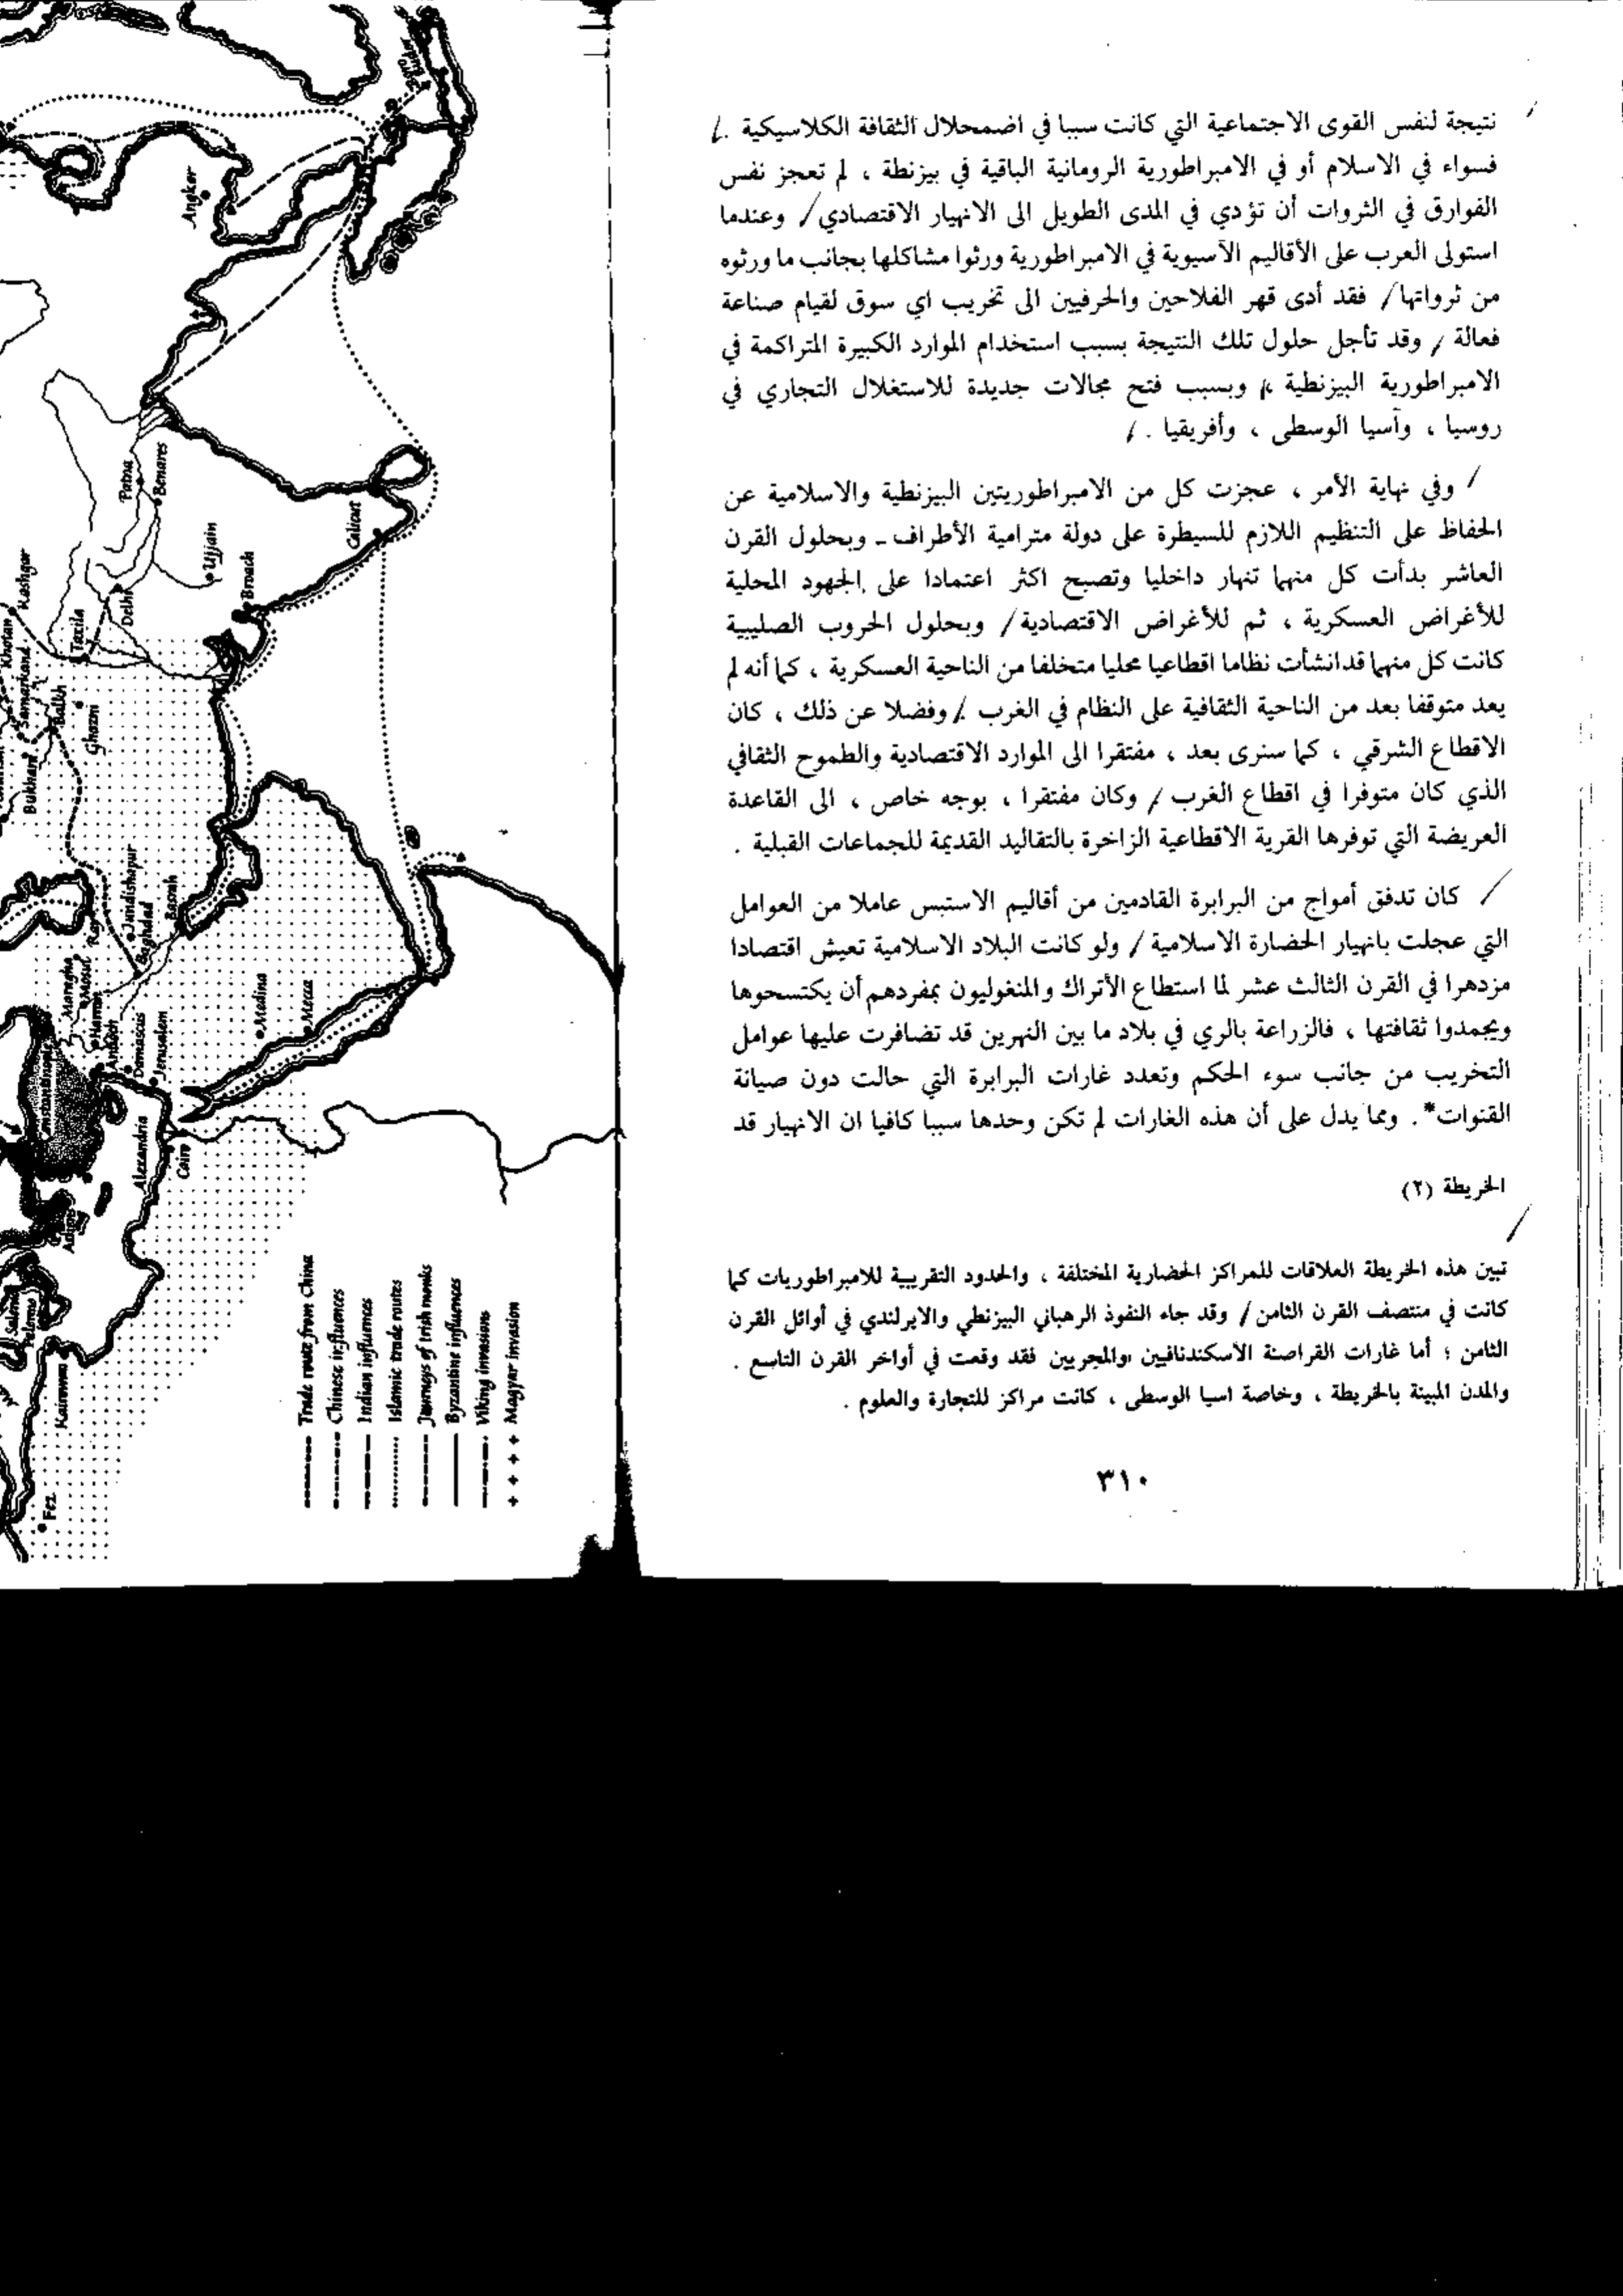 نتيجة لنفس القوى الاجتماعية التي كانت سببا في اضمحلال الثقافة الكلاسيكية .
فسواء في الاسلام أو في الامبراطورية الرومانية الباقية في بيزنطة ، لم تعجز نفس
الفوارق في الثروات أن تؤدي في المدى الطويل الى الانهيار الاقتصادي / وعندما
استولى العرب على الأقاليم الآسيوية في الامبراطورية ورثوا مشاكلها بجانب ما ورثوه
من ثرواتها / فقد أدى قهر الفلاحين والحرفيين الى تخريب اي سوق لقيام صناعة
فعالة / وقد تأجل حلول تلك النتيجة بسبب استخدام الموارد الكبيرة المتراكمة في
الامبراطورية البيزنطية ، وبسبب فتح مجالات جديدة للاستغلال التجاري في
روسيا ، وآسيا الوسطى ، وأفريقيا . /
/ وفي نهاية الأمر ، عجزت كل من الامبراطوريتين البيزنطية والاسلامية عن
الحفاظ على التنظيم اللازم للسيطرة على دولة مترامية الأطراف ـ وبحلول القرن
العاشر بدأت كل منهما تنهار داخليا وتصبح اكثر اعتمادا على الجهود المحلية
للأغراض العسكرية ، ثم للأغراض الاقتصادية / وبحلول الحروب الصليبية
كانت كل منهما قد انشأت نظاما اقطاعيا محليا متخلفا من الناحية العسكرية ، كما أنه لم
يعد متوقفا بعد من الناحية الثقافية على النظام في الغرب / وفضلا عن ذلك ، كان
الاقطاع الشرقي ، كما سنرى بعد ، مفتقرا الى الموارد الاقتصادية والطموح الثقافي
الذي كان متوفرا في اقطاع الغرب / وكان مفتقرا ، بوجه خاص ، الى القاعدة
العريضة التي توفرها القرية الاقطاعية الزاخرة بالتقاليد القديمة للجماعات القبلية .
/ كان تدفق أمواج من البرابرة القادمين من أقاليم الاستبس عاملا من العوامل
التي عجلت بانهيار الحضارة الاسلامية / ولو كانت البلاد الاسلامية تعيش اقتصادا
مزدهرا في القرن الثالث عشر لما استطاع الأتراك والمنغوليون بمفردهم أن يكتسحوها
ويجمدوا ثقافتها ، فالزراعة بالري في بلاد ما بين النهرين قد تضافرت عليها عوامل
التخريب من جانب سوء الحكم وتعدد غارات البرابرة التي حالت دون صيانة
القنوات* . ومما يدل على أن هذه الغارات لم تكن وحدها سببا كافيا ان الانهيار قد
الخريطة (٢)
تبين هذه الخريطة العلاقات للمراكز الحضارية المختلفة ، والحدود التقريبية للامبراطوريات كما
كانت في منتصف القرن الثامن / وقد جاء النفوذ الرهباني البيزنطي والايرلندي في أوائل القرن
الثامن ؛ أما غارات القراصنة الاسكندنافيين والمجريين فقد وقعت في أواخر القرن التاسع .
والمدن المبينة بالخريطة ، وخاصة اسيا الوسطى ، كانت مراكز للتجارة والعلوم .
٣١٠
Angkor
Patna
Benares
Calicut
Ujjain
Broach
Kashgar
Khotan
Taxila
Delhi
Samarkand
Balkh
Ghazni
Bukhara
Jundishapur
Baghdad
Basrah
Maragha
Mosul
Harran
Antioch
Damascus
Jerusalem
Medina
Mecca
Alexandria
Cairo
Salerno
Palermo
Kairouan
Fez
Trade route from China
Chinese influences
Indian influences
Islamic trade routes
Journeys of Irish monks
Byzantine influences
Viking invasions
Magyar invasion